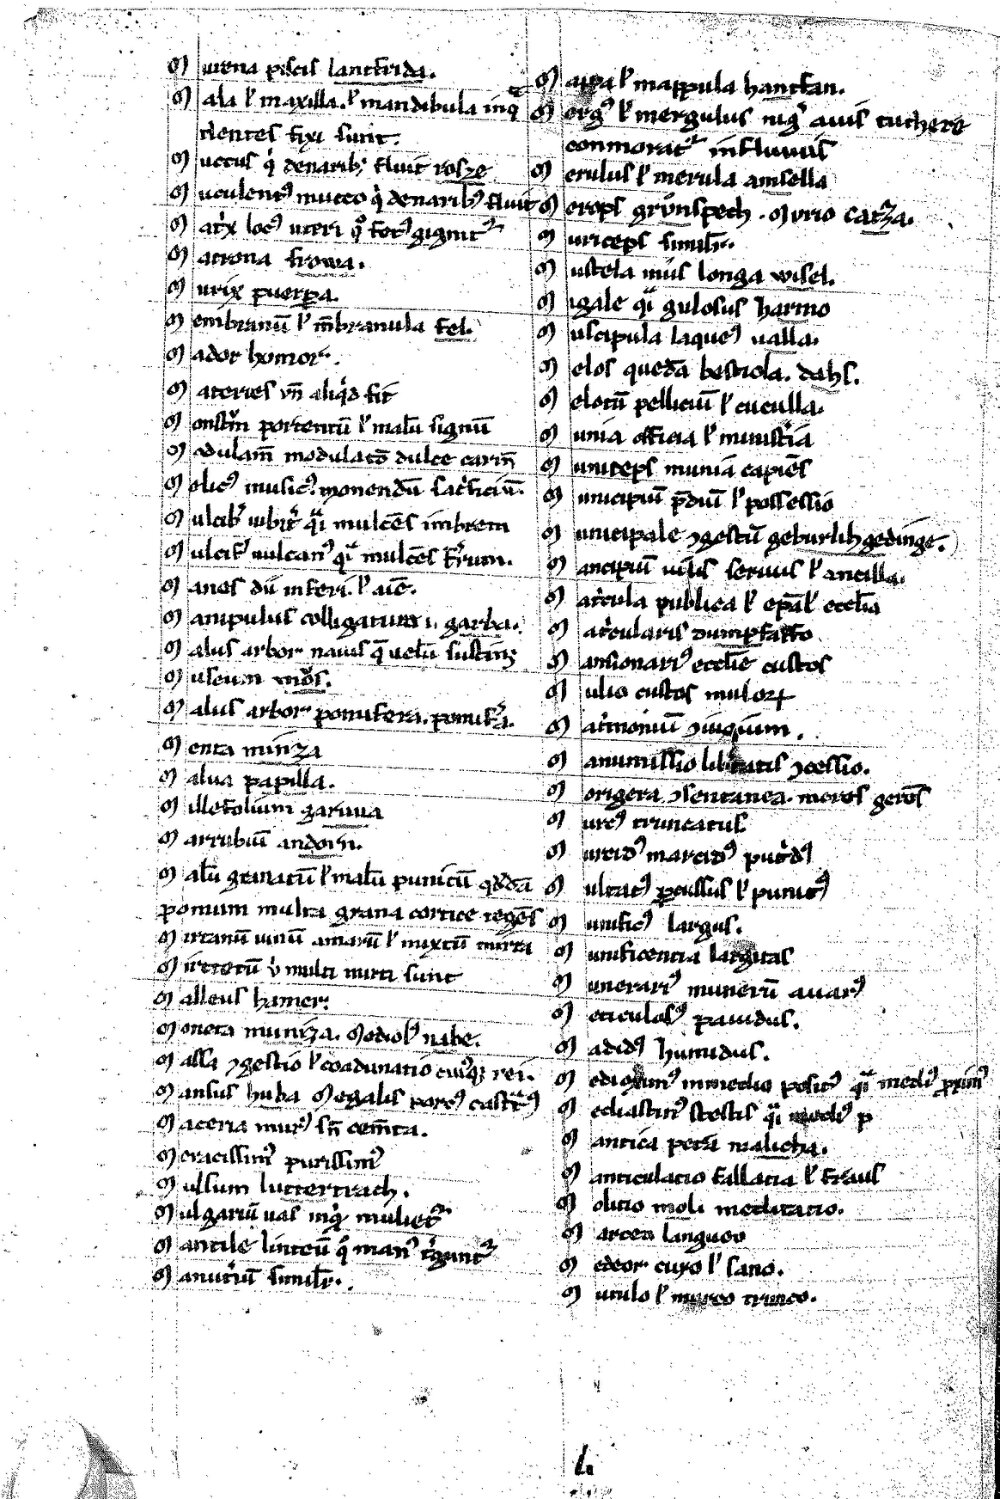 M urena piscis lantfrida.
M ala ł maxilla. ł mandibula inq̇
dentes fixi sunt.
M uccus q̇ denarib; fluit rosze
M uculent᾽ mucco q̇ denarib᾽ fluit
M at̾x loc᾽ uteri q̊ fet᾽ gignit᾽
M atrona frowa.
M urix puerpa.
M embranū ł m̄branula fel.
M ador homor.
M ateries vn̄ aliq̇d fit
M onstr̄ portentū ł malū signū
M odulam̄ modulatō dulce carm̄
M olic᾽ music᾽ monendū sacrificiū.
M ulcib᾽ q̇i mulcēs imbrem
M ulcif᾽ uulcan᾽ q̇i mulcēs ferrum.
M anes dii inferi. ł aīe.
M anipulus colligatura i. garba.
M alus arbor nauis q̄ uelū sustin;
M useum mos.
M alus arbor pomifera. pomifa.
M enta minza
M alua papilla.
M illefolium garuua
M arrubiū andorn.
M alū granatū ł malū punicū qddā
pomum multa grana cortice tegēs
M irtanū uinū amarū ł mixtū mirta
M irtetū v̇ multi mirti sunt
M alleus hamer.
M oneta muniza. Modiol᾽ nabe.
M assa ɔgestio ł coadunatio cui᾽q; rei.
M ansus huba Megalis porc᾽ castt᾽
M aceria mur᾽ sn̄ cem̄ta.
M eracissim᾽ purissim᾽
M ulsum luttertrach.
M ulgariū uas inq̇ mulget᾽
M antile linteū q̊ man᾽ t̾gunt᾽
M anut̾iū simil̄r.
M appa ł mappula hantfan.
M erg᾽ ł mergulus nig᾽ auis tuchere
conmorat᾽ influuiis
M erulus ł merula amsella
M erops grūnspech. Murio catza.
M uriceps simil̄r.
M ustela mus longa wisel.
M igale q̇i gulosus harmo
M uscipula laque᾽ ualla.
M elos quedā bestiola. dahs.
M elotū pelliciū ł cuculla.
M unia officia ł minist̾ia
M uniceps munia capiēs
M unicipiū p̄diū ł possessio
M unicipale ɔgestū geburlih gedinge.
M ancipiū uilis seruus ł ancilla.
M at̾cula publica ł ep̄a ł eccl̄ia
M at̾cularis dumpfaffo
M ansionari᾽ eccl̄ie custos
M ulio custos mulor̷
M at̾moniū ɔiugium.
M anumissio libertatis ɔcessio.
M origera ɔsentanea. mores gerēs
M urc᾽ truncatus
M urcid᾽ marcid᾽ put̾d᾽
M ultat᾽ percussus ł punit᾽
M unific᾽ largus.
M unificentia largitas
M unerari᾽ munerū auar᾽
M eticulos᾽ pauidus.
M adid᾽ humidus.
M edioxim᾽ inmedio posit᾽ q̇i medi᾽ pxim᾽
M ediastin᾽ q̇i medi᾽ p
M antica pera malicha.
M anticulatio fallatia ł fraus
M olitio moli meditatio.
M arceo langueo
M edeor curo ł sano.
M utulo ł murco trunco.
L